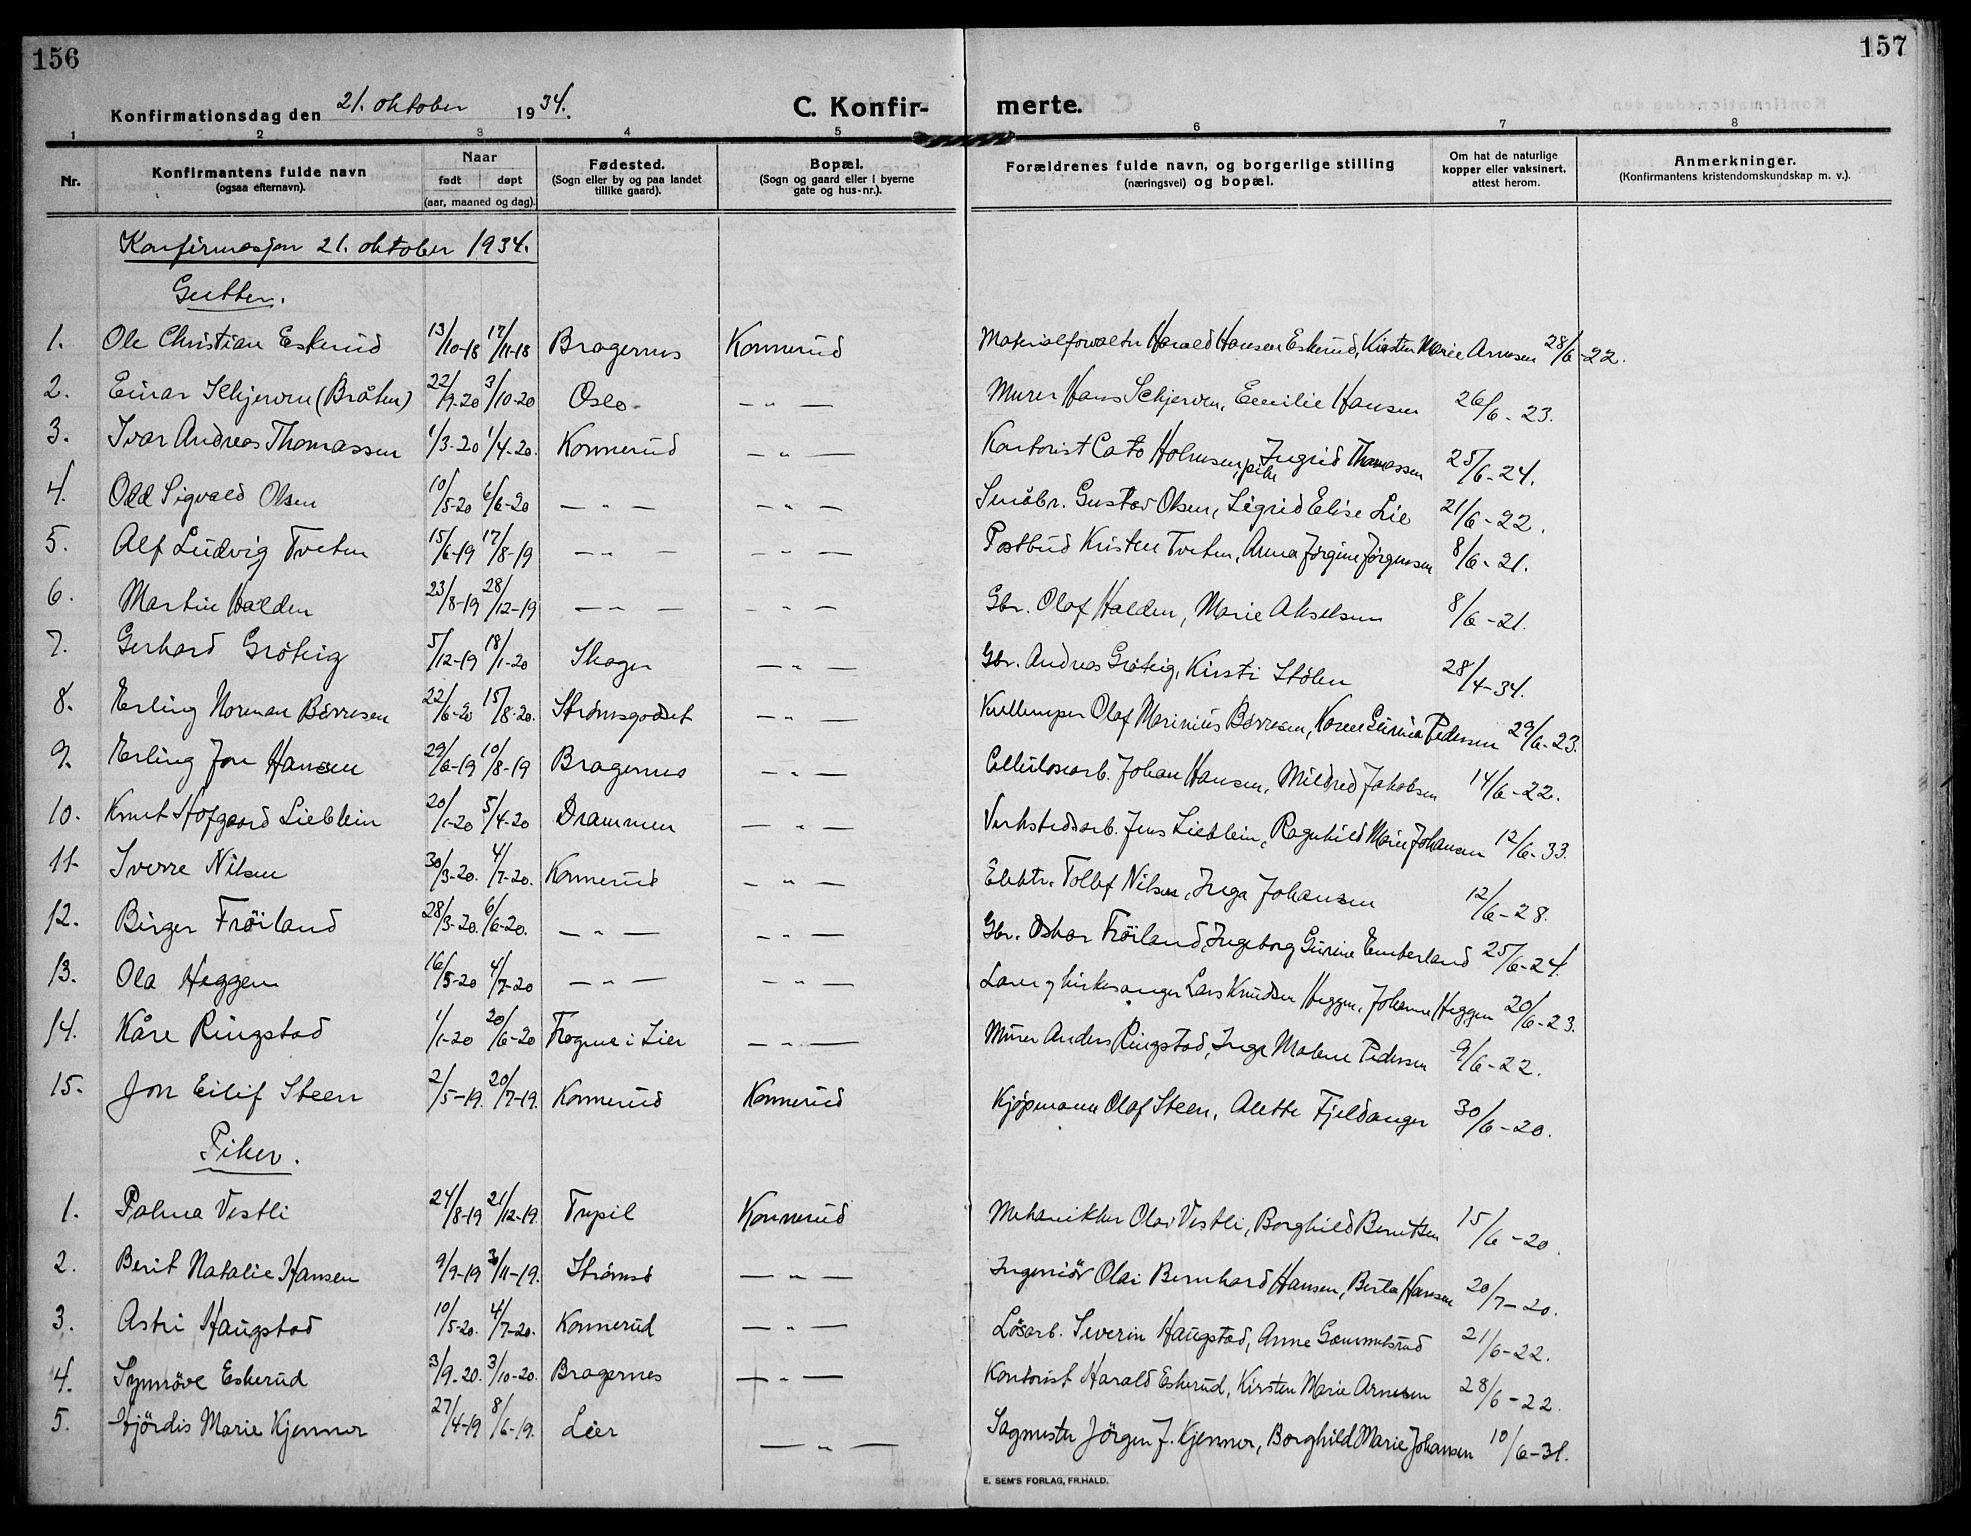 156
157
Konfirmationsdag den 21. oktober 1934.
C. Konfirmerte.
1 2 3 4 5 6 7 8
Nr.
Konfirmantens fulde navn (ogsaa efternavn).
Naar født døpt (aar, maaned og dag).
Fødested. (Sogn eller by og paa landet tillike gaard).
Bopæl. (Sogn og gaard eller i byerne gate og hus-nr.).
Forældrenes fulde navn, og borgerlige stilling (næringsvei) og bopæl.
Om hat de naturlige kopper eller vaksinert, attest herom.
Anmerkninger. (Konfirmantens kristendomskundskap m. v.).
Konfirmasjon 21. oktober 1934.
Gutter.
1. Ole Christian Eskerud 13/10-18 17/11-18 Bragernes Konnerud Materialforvalter Harald Hansen Eskerud, Kirsten Marie Arnesen 28/6-22.
2. Einar Schjerven (Bråten) 22/9-20 3/10-20 Oslo — " — Murer Hans Schjerven, Emilie Hansen 26/6-23.
3. Ivar Andreas Thomassen 1/3-20 1/4-20. Konnerud — " — Kontorist Cato Holmsen, pike Ingrid Thomassen 25/6-24.
4. Odd Sigvald Olsen 10/5-20 6/6-20 — " — — " — Småbr. Gustav Olsen, Sigrid Elise Lie 21/6-22.
5. Alf Ludvig Tveten 15/6-19 17/8-19 — " — — " — Postbud Kristen Tveten, Anna Jørgine Jørgensen 8/6-21.
6. Martin Halden 23/8-19 28/12-19 — " — — " — Gbr. Olaf Halden, Marie Akselsen 8/6-21.
7. Gerhard Gröteig 5/12-19 18/1-20 Skoger — " — Gbr. Andreas Gröteig, Kirsti Stölen 28/4-34.
8. Erling Norman Børresen 22/6-20 15/8-20. Strömsgodset — " — Olaf Marinius Børresen, Karen Gurine Pedersen 29/6-23.
9. Erling Jon Hansen 29/6-19 10/8-19 Bragernes — " — Cellulosearb. Johan Hansen, Mildred Jakobsen 14/6-22.
10. Knut Hofgaard Lieblein 20/1-20 5/4-20 Drammen — " — Verkstedsarb. Jens Lieblein, Ragnhild Marie Johansen 12/6-33.
11. Sverre Nilsen 30/3-20. 4/7-20. Konnerud — " — Elektr. Tollef Nilsen, Inga Johansen 12/6-28.
12. Birger Fröiland 28/3-20. 6/6-20. — " — — " — Gbr. Oskar Fröiland, Ingeborg Gurine Emberland 25/6-24.
13. Ola Heggen 16/5-20 4/7-20 — " — — " — Lærer og kirkesanger Lars Knudsen Heggen, Johanne Heggen 20/6-23.
14. Kåre Ringstad 1/1-20 20/6-20 Frogner i Lier — " — Murer Anders Ringstad, Inga Malene Pedersen 9/6-22.
15. Jon Eilif Steen 2/5-19. 20/7-19. Konnerud Konnerud Kjøpmann Olaf Steen, Alette Fjeldanger 30/6-20.
Piker.
1. Palma Vestli 24/8-19 21/12-19 Trysil Konnerud Mekanikker Olav Vestli, Borghild Berntsen 15/6-20.
2. Berit Natalie Hansen 9/9-19 30/11-19. Strömsö — " — Ingeniör Olai Bernhard Hansen, Berta Hansen 20/7-20.
3. Astri Haugstad 10/5-20. 4/7-20. Konnerud — " — Løsarb. Severin Haugstad, Anne Gammelsrud 21/6-22.
4. Synnöve Eskerud 3/9-20. 3/10-20. Bragernes — " — Kontorist Harald Eskerud, Kirsten Marie Arnesen 28/6-22.
5. Hjördis Marie Kjenner 27/4-19 8/6-19. Lier — " — Sagmester Jörgen J. Kjenner, Borghild Marie Johansen 10/6-31.
E. SEM'S FORLAG, FR.HALD.